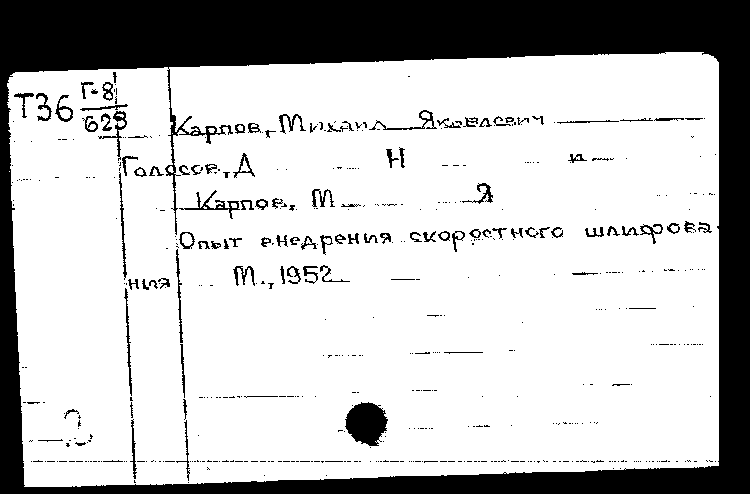 Т36 Г-8
628
Карпов, Михаил Яковлевич
Голосов, Д Н и
Карпов, М Я
Опыт внедрения скоростного шлифова
ния М., 1952
2